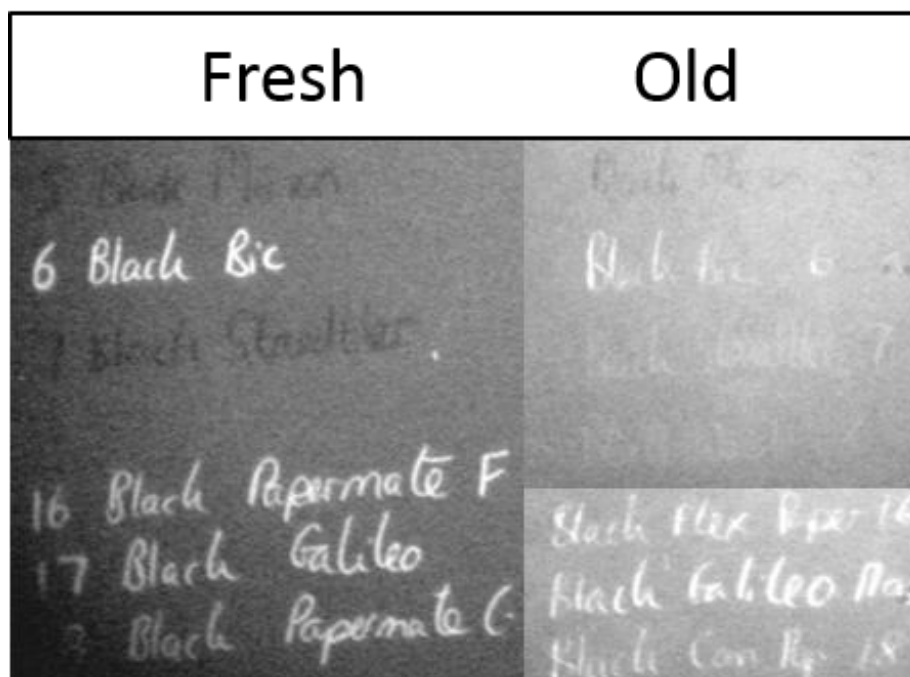 Fresh
Old
Black
6 Black Bic
7 Black Staedtler
16 Black Papermate F
17 Black Galileo
Black Papermate C
Black
Black Bic 6
7
Black Flex Paper 16
Black Galileo
Black Con Pap 18